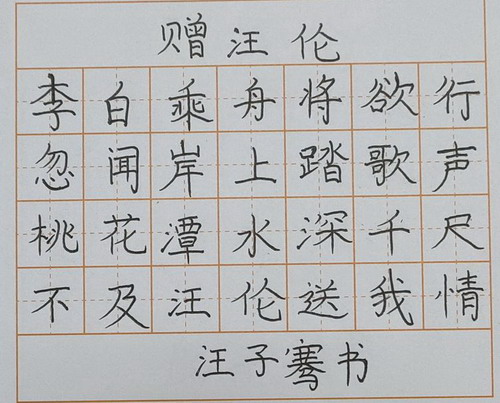 赠汪伦
李白乘舟将欲行
忽闻岸上踏歌声
桃花潭水深千尺
不及汪伦送我情
汪子骞书